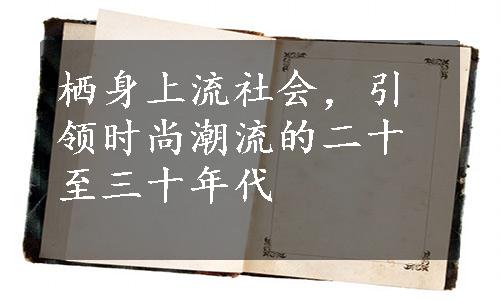 栖身上流社会，引
领时尚潮流的二十
至三十年代